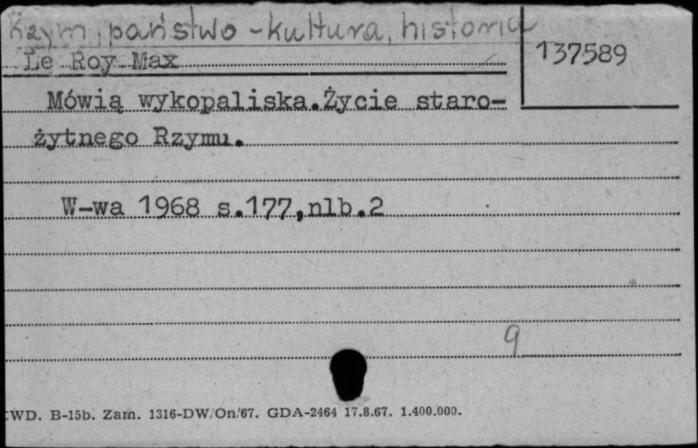 Rzym, państwo - kultura, historia
137589
Le Roy Max
Mówią wykopaliska.Życie staro-
żytnego Rzymu.
W-wa 1968 s.177,nlb.2
9
CWD. B-15b. Zam. 1316-DW/On/67. GDA-2464 17.8.67. 1.400.000.